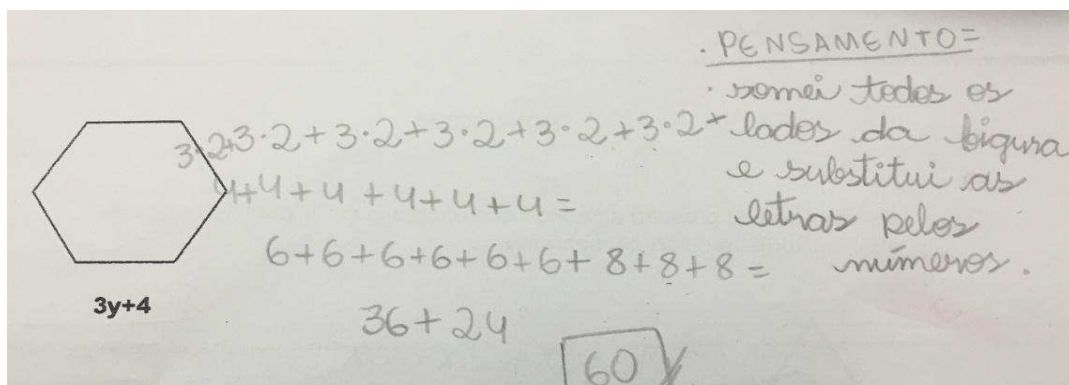 3·2+3·2+3·2+3·2+3·2+3·2+
4+4+4+4+4+4=
6+6+6+6+6+6+8+8+8=
36+24
60
3y+4
· PENSAMENTO=
· somei todos os
lados da figura
e substitui as
letras pelos
números.